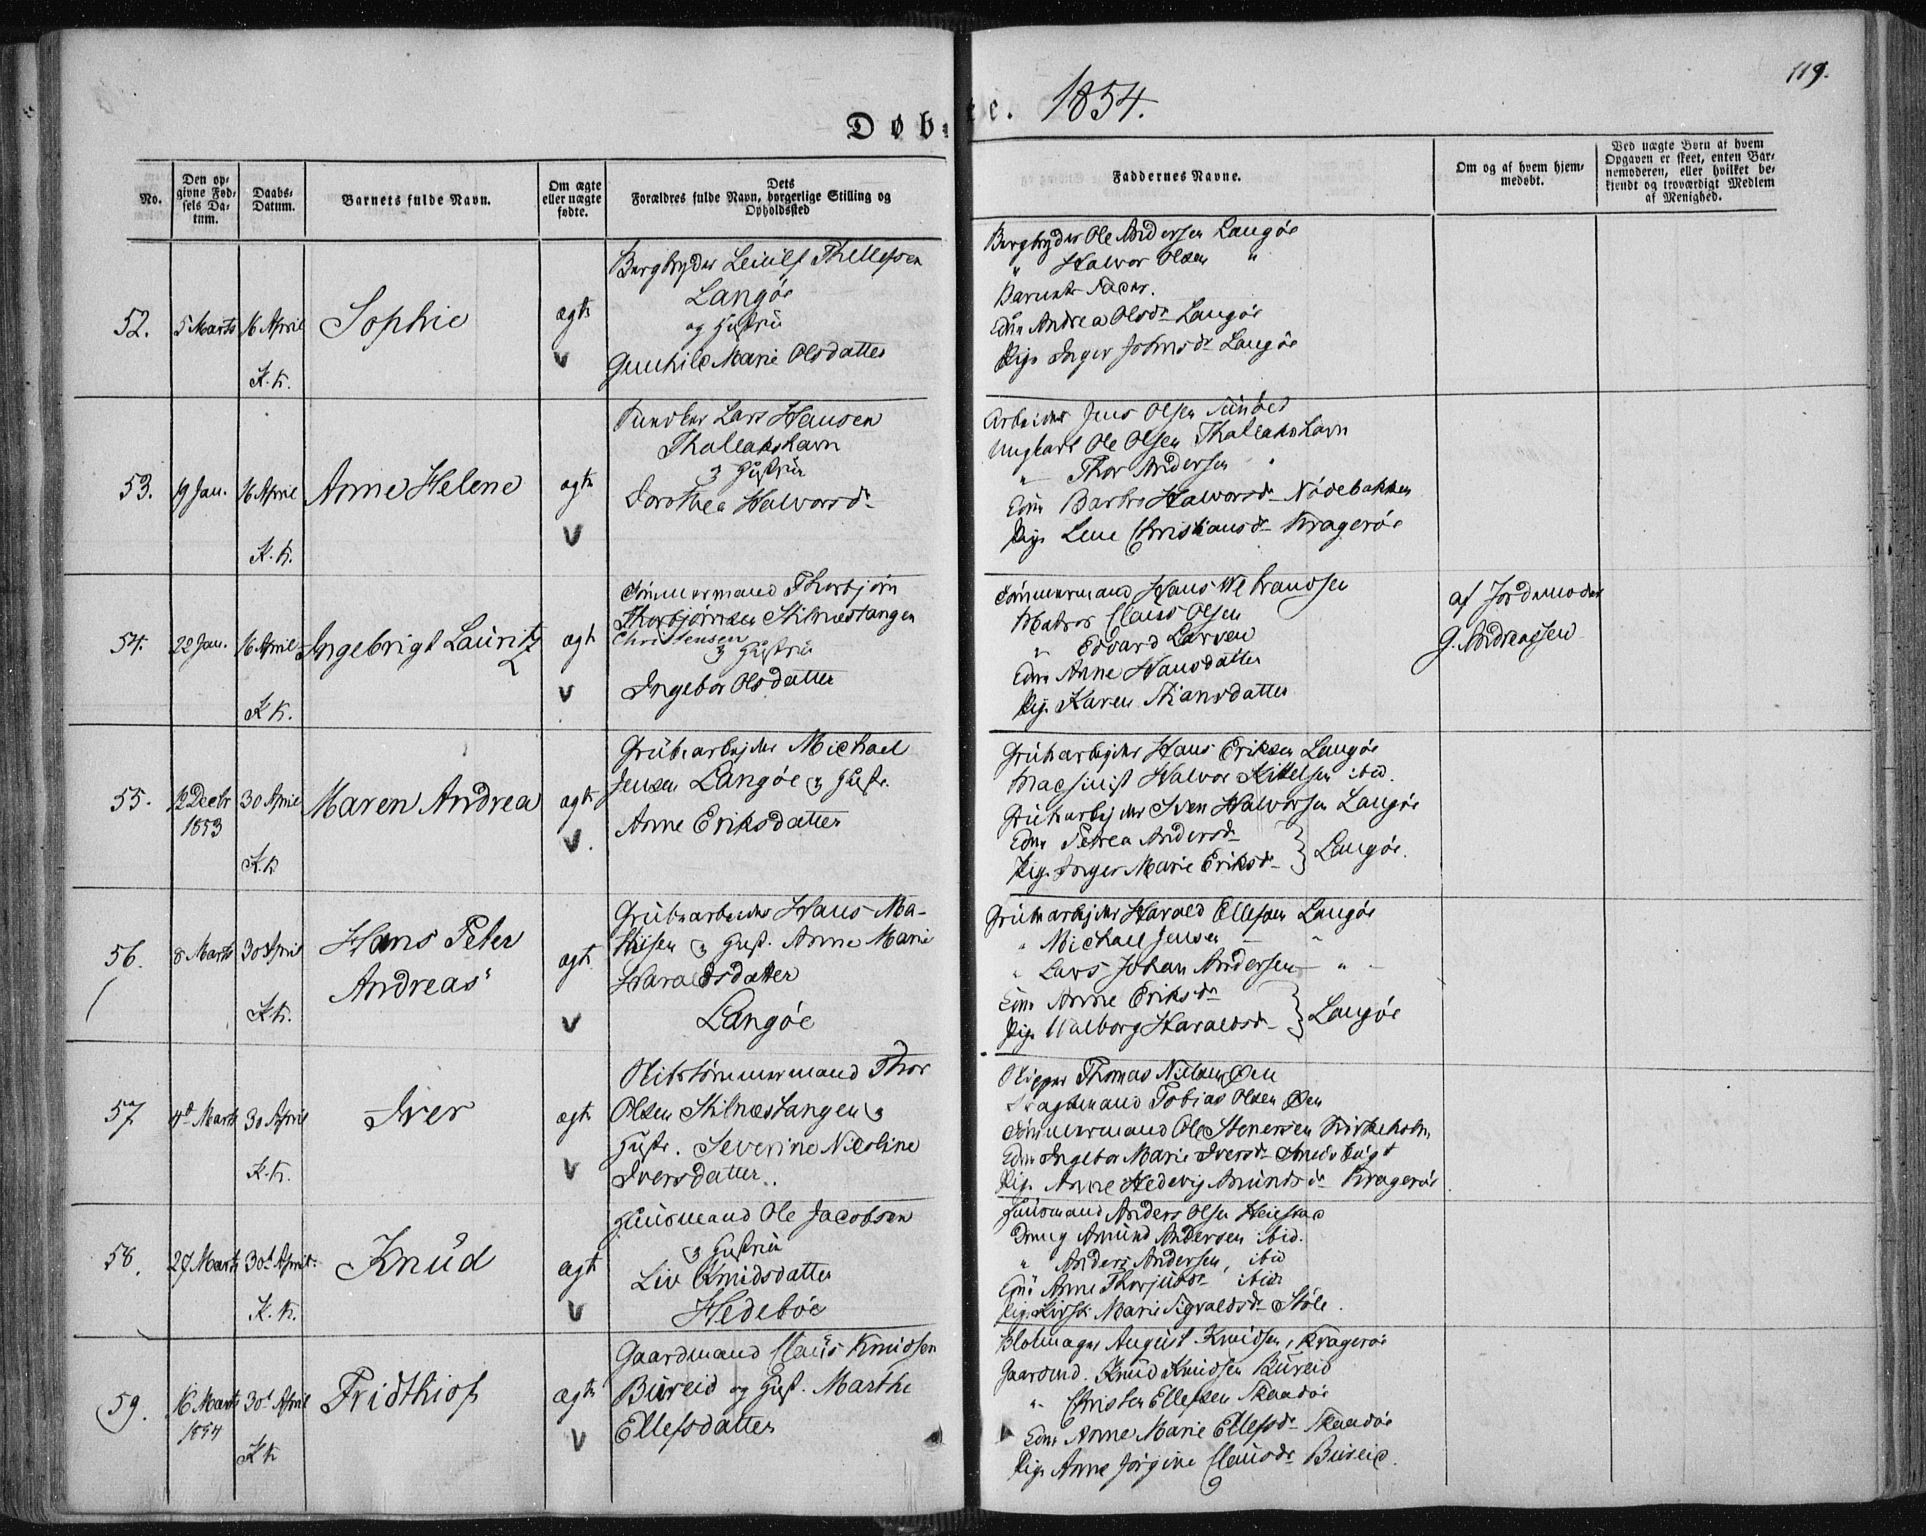 119.
Døbte. 1854.
No.
Den opgivne Fødsels Datum.
Daabs-Datum.
Barnets fulde Navn.
Om ægte eller uægte fødte.
Dets Forældres fulde Navn, borgerlige Stilling og Opholdssted
Faddernes Navne.
Om og af hvem hjemmedøbt.
Ved uægte Børn af hvem Opgaven er skeet, enten Barnemoderen, eller hvilket bekjendt og troværdigt Medlem af Menighed.
52.
5 Marts
16 April
K. k.
Sophie
ægte
V
Bergbryder Leiulf Thellefsen
Langøe
og Hustrue
Gunhild Marie Olsdatter
Bergbryder Ole Andersen Langøe
" Halvor Olsen "
Barnets Fader.
Andrea Olsdr Langøe
Pige Inger Johnsdr Langøe
53.
19 Jan.
16 April
K. k.
Anne Helene
ægte
V
Lars Hansen
Thallakshavn
& Hustrue
Dorothea Halvorsdr
Arbeider Jens Olsen
Ungkarl Ole Olsen Thallakshavn
" Thor Andersen "
Halvorsdr Nødebakken
Pige Lene Christiansdr Kragerøe
54.
22 Jan.
16 April
K. k.
Ingebrigt Lauritz
ægte
V
Tømmermand Thorbjørn
Thorbjørnsen Stilnæstangen
Christensen
& Hustrue
Ingebor Olsdatter
Tømmermand Hans Webrandsen
Matros Claus Olsen
" Edvard Larsen
Anne Hansdatter
Pige Karen Stiansdatter
af Jordmoder
G. Andreassen
55.
12 Decbr
1853
30 April
K. k
Maren Andrea
ægte
V.
Grubearbejder Michael
Jensen Langøe & Hustr.
Anne Eriksdatter
Grubearbejder Hans Eriksen Langøe
Maschinist Halvor Kittelsen ibid.
Grubearbejder Sven Halvorsen Langøe
Petrea Andersdr
Pige Inger Marie Eriksdr } Langøe.
56.
8 Marts
30 April
K. k.
Hans Peter
Andreas
ægte
V
Grubearbeider Hans Ma-
thisen & Hust. Anne Marie
Haraldsdatter
Langøe
Grubearbejder Harald Ellefsen Langøe
" Michael Jensen — "
" Lars Johan Andersen — " —
Anne Eriksdr
Pige Walborg Haraldsdr } Langøe
57
4d Marts
30 April
K. k.
Iver
ægte
V
Skibstømmermand Thor
Olsen Stilnæstangen &
Hustr. Severine Nicoline
Iversdatter.
Skipper Thomas Nielsen Øen
Tobias Olsen Øen
Tømmermand Ole Stenersen Kirkeholm
Ingebor Marie Iversdr
Pige Anne Hedevig Amundsdr Kragerøe
58.
27 Marts
30t April
K. k.
Knud
ægte
V
Huusmand Ole Jacobsen
& Hustrue
Liv Knudsdatter
Hedebøe
Huusmand Anders Olsen Heiestad
Dreng Amund Andersen ibid.
" Anders Andersen, ibid
Anne ibid
Pige Marie Sigvaldsdr Støle.
59.
16 Marts
1854
30t April
K k
Fridthiof
ægte
V
Gaardmand Claus Knudsen
Bureid og Hust. Marthe
Ellefsdatter
August Knudsen, Kragerøe
Gaardmd. Knud Knudsen Bureid
" Christen Ellefsen Skaadøe
Anne Marie Ellefsdr Skaadøe
Pige Anne Jørgine Clausdr Bureid.